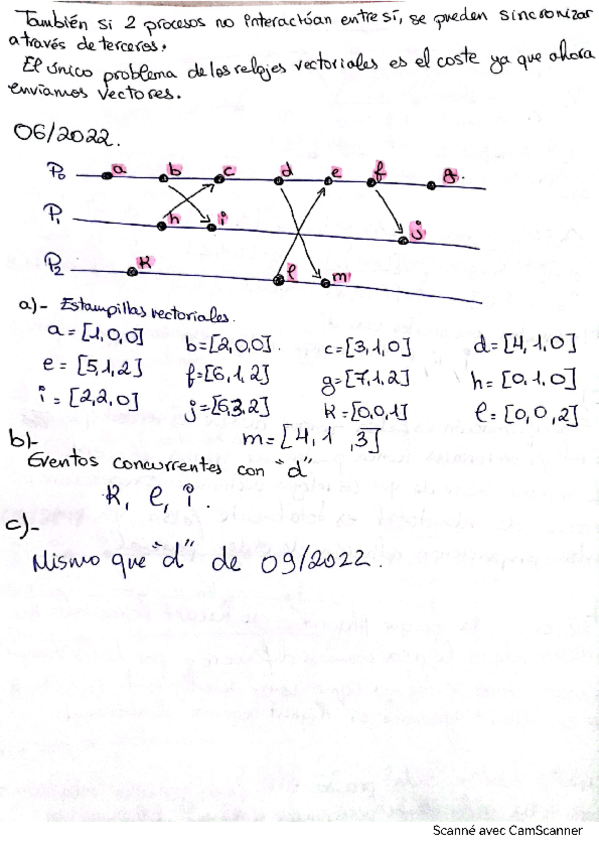 También si 2 procesos no interactúan entre sí, se pueden sincronizar
a través de terceros.
El único problema de los relojes vectoriales es el coste ya que ahora
enviamos vectores.
06/2022.
P0 a b c d e f g.
P1 h i j
P2 K l m
a)- Estampillas vectoriales.
a=[1,0,0] b=[2,0,0]. c=[3,1,0] d=[4,1,0]
e=[5,1,2] f=[6,1,2] g=[7,1,2] h=[0,1,0]
i=[2,2,0] j=[6,3,2] K=[0,0,1] l=[0,0,2]
m=[4,1,3]
b)-
Eventos concurrentes con "d"
K, l, i.
c)-
Mismo que "d" de 09/2022.
Scanné avec CamScanner